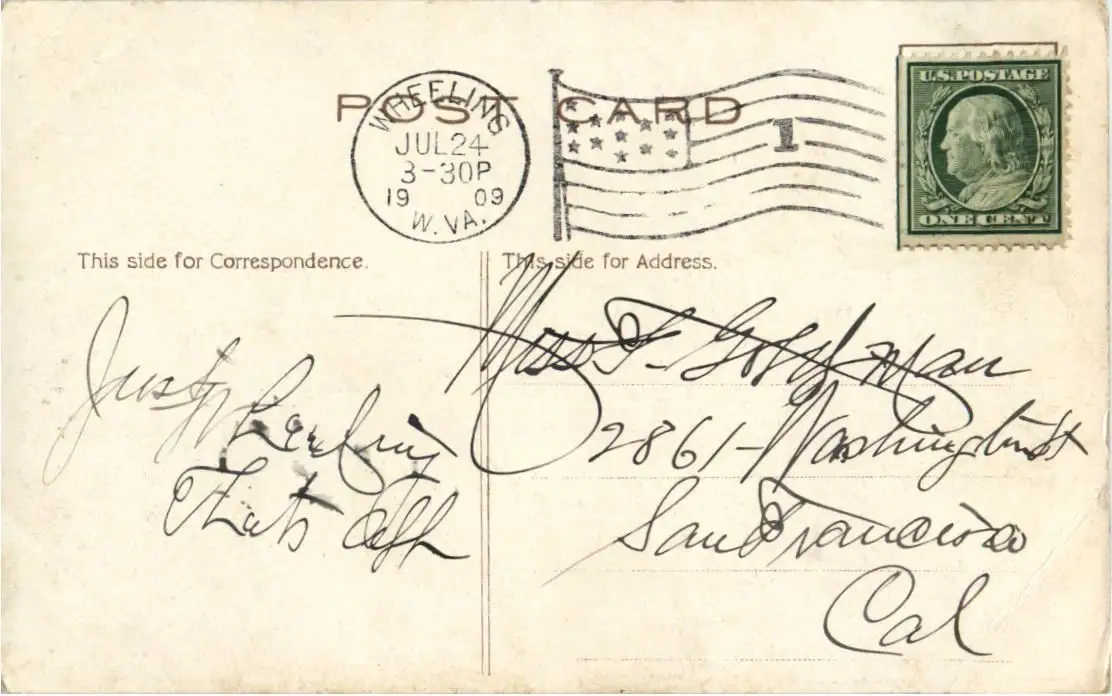 POST CARD
WHEELING
JUL 24
3-30P
19 09
W. VA.
1
U.S. POSTAGE
ONE CENT
This side for Correspondence.
This side for Address.
Just
Thats all
Miss F Goldman
2861 - Washington St
San Francisco
Cal